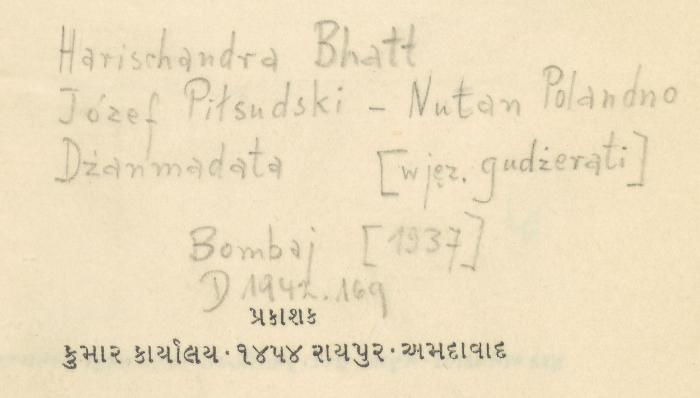 Harischandra Bhatt
Józef Piłsudski – Nutan Polandno
Dżanmadata [w jęz. gudżerati]
Bombaj [1937]
D 1942.169
પ્રકાશક
કુમાર કાર્યાલય · ૧૪૫૪ રાયપુર · અમદાવાદ